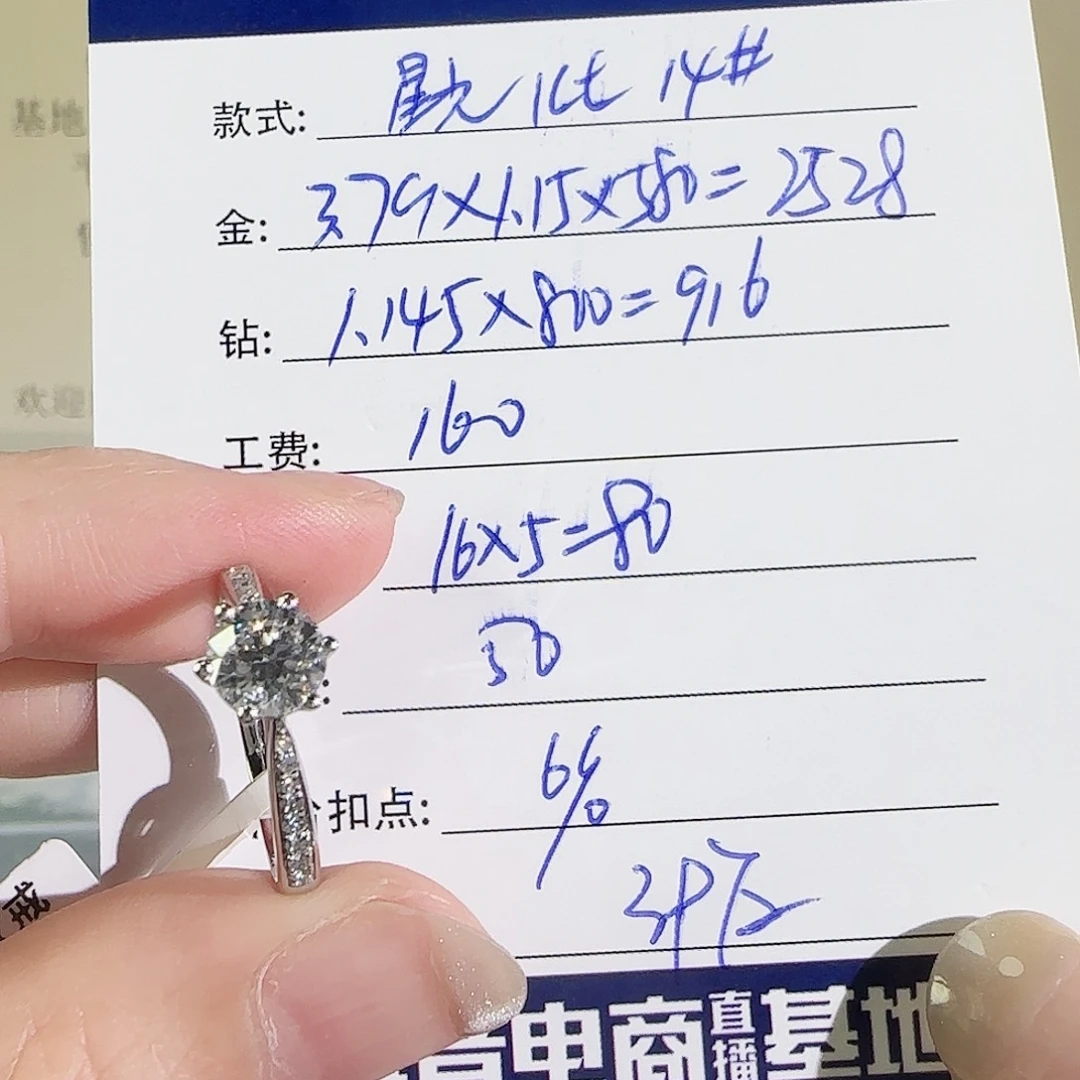 款式: 星光 1ct 14#
金: 3.79×1.15×580=2528
钻: 1.145×800=916
工费: 160
16×5=80
50
扣点: 6%
证
电商直播基地
基地
欢迎
戒